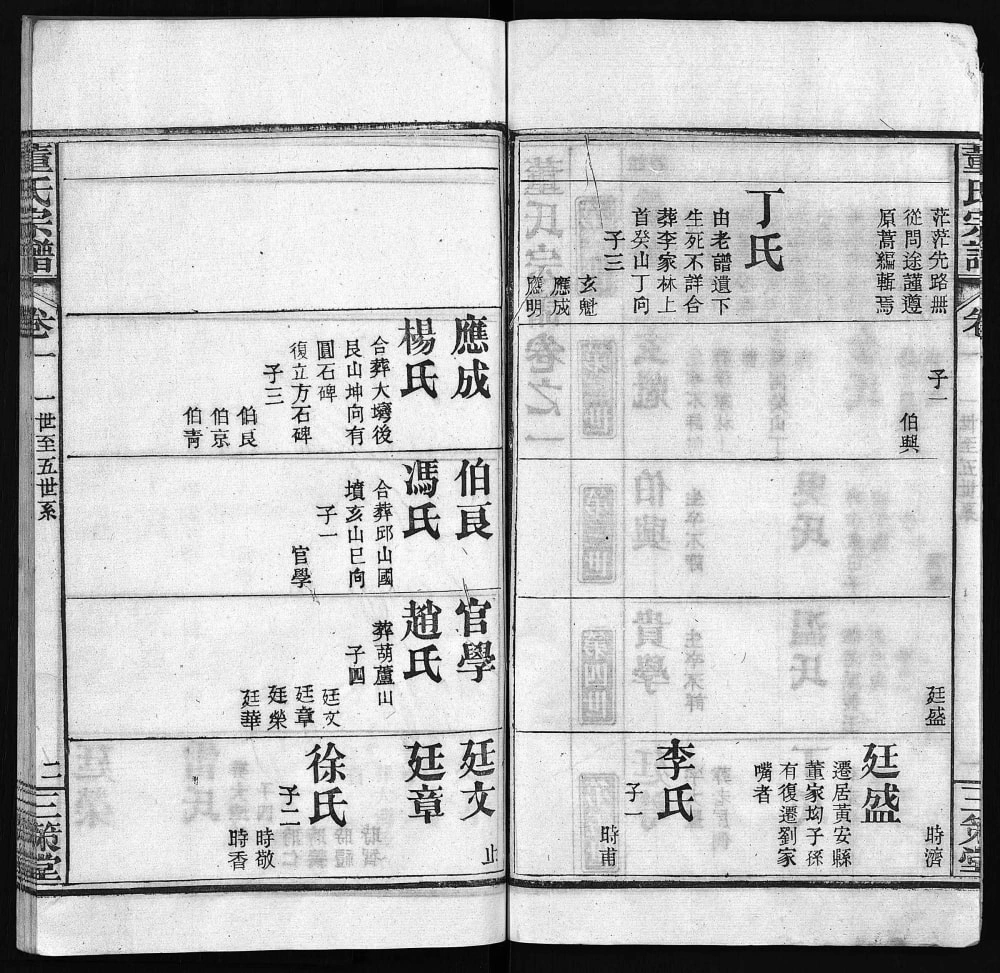 董氏宗譜
卷
茫茫先路無
從問途謹遵
原藁編輯焉
丁氏
由老譜遺下
生死不詳合
葬李家林上
首癸山丁向
子三
玄魁
應成
應明
子一
伯興
廷盛
時濟
廷盛
遷居黃安縣
董家坳子孫
有復遷劉家
嘴者
李氏
子一
時甫
三策堂
應成
楊氏
合葬大塆後
艮山坤向有
圓石碑
復立方石碑
子三
伯良
伯京
伯青
伯良
馮氏
合葬邱山國
墳亥山巳向
子一
官學
官學
趙氏
葬葫蘆山
子四
廷文
廷章
廷榮
廷華
廷文
止
廷章
徐氏
子二
時敬
時香
董氏宗譜
卷一
一世至五世系
二
三策堂